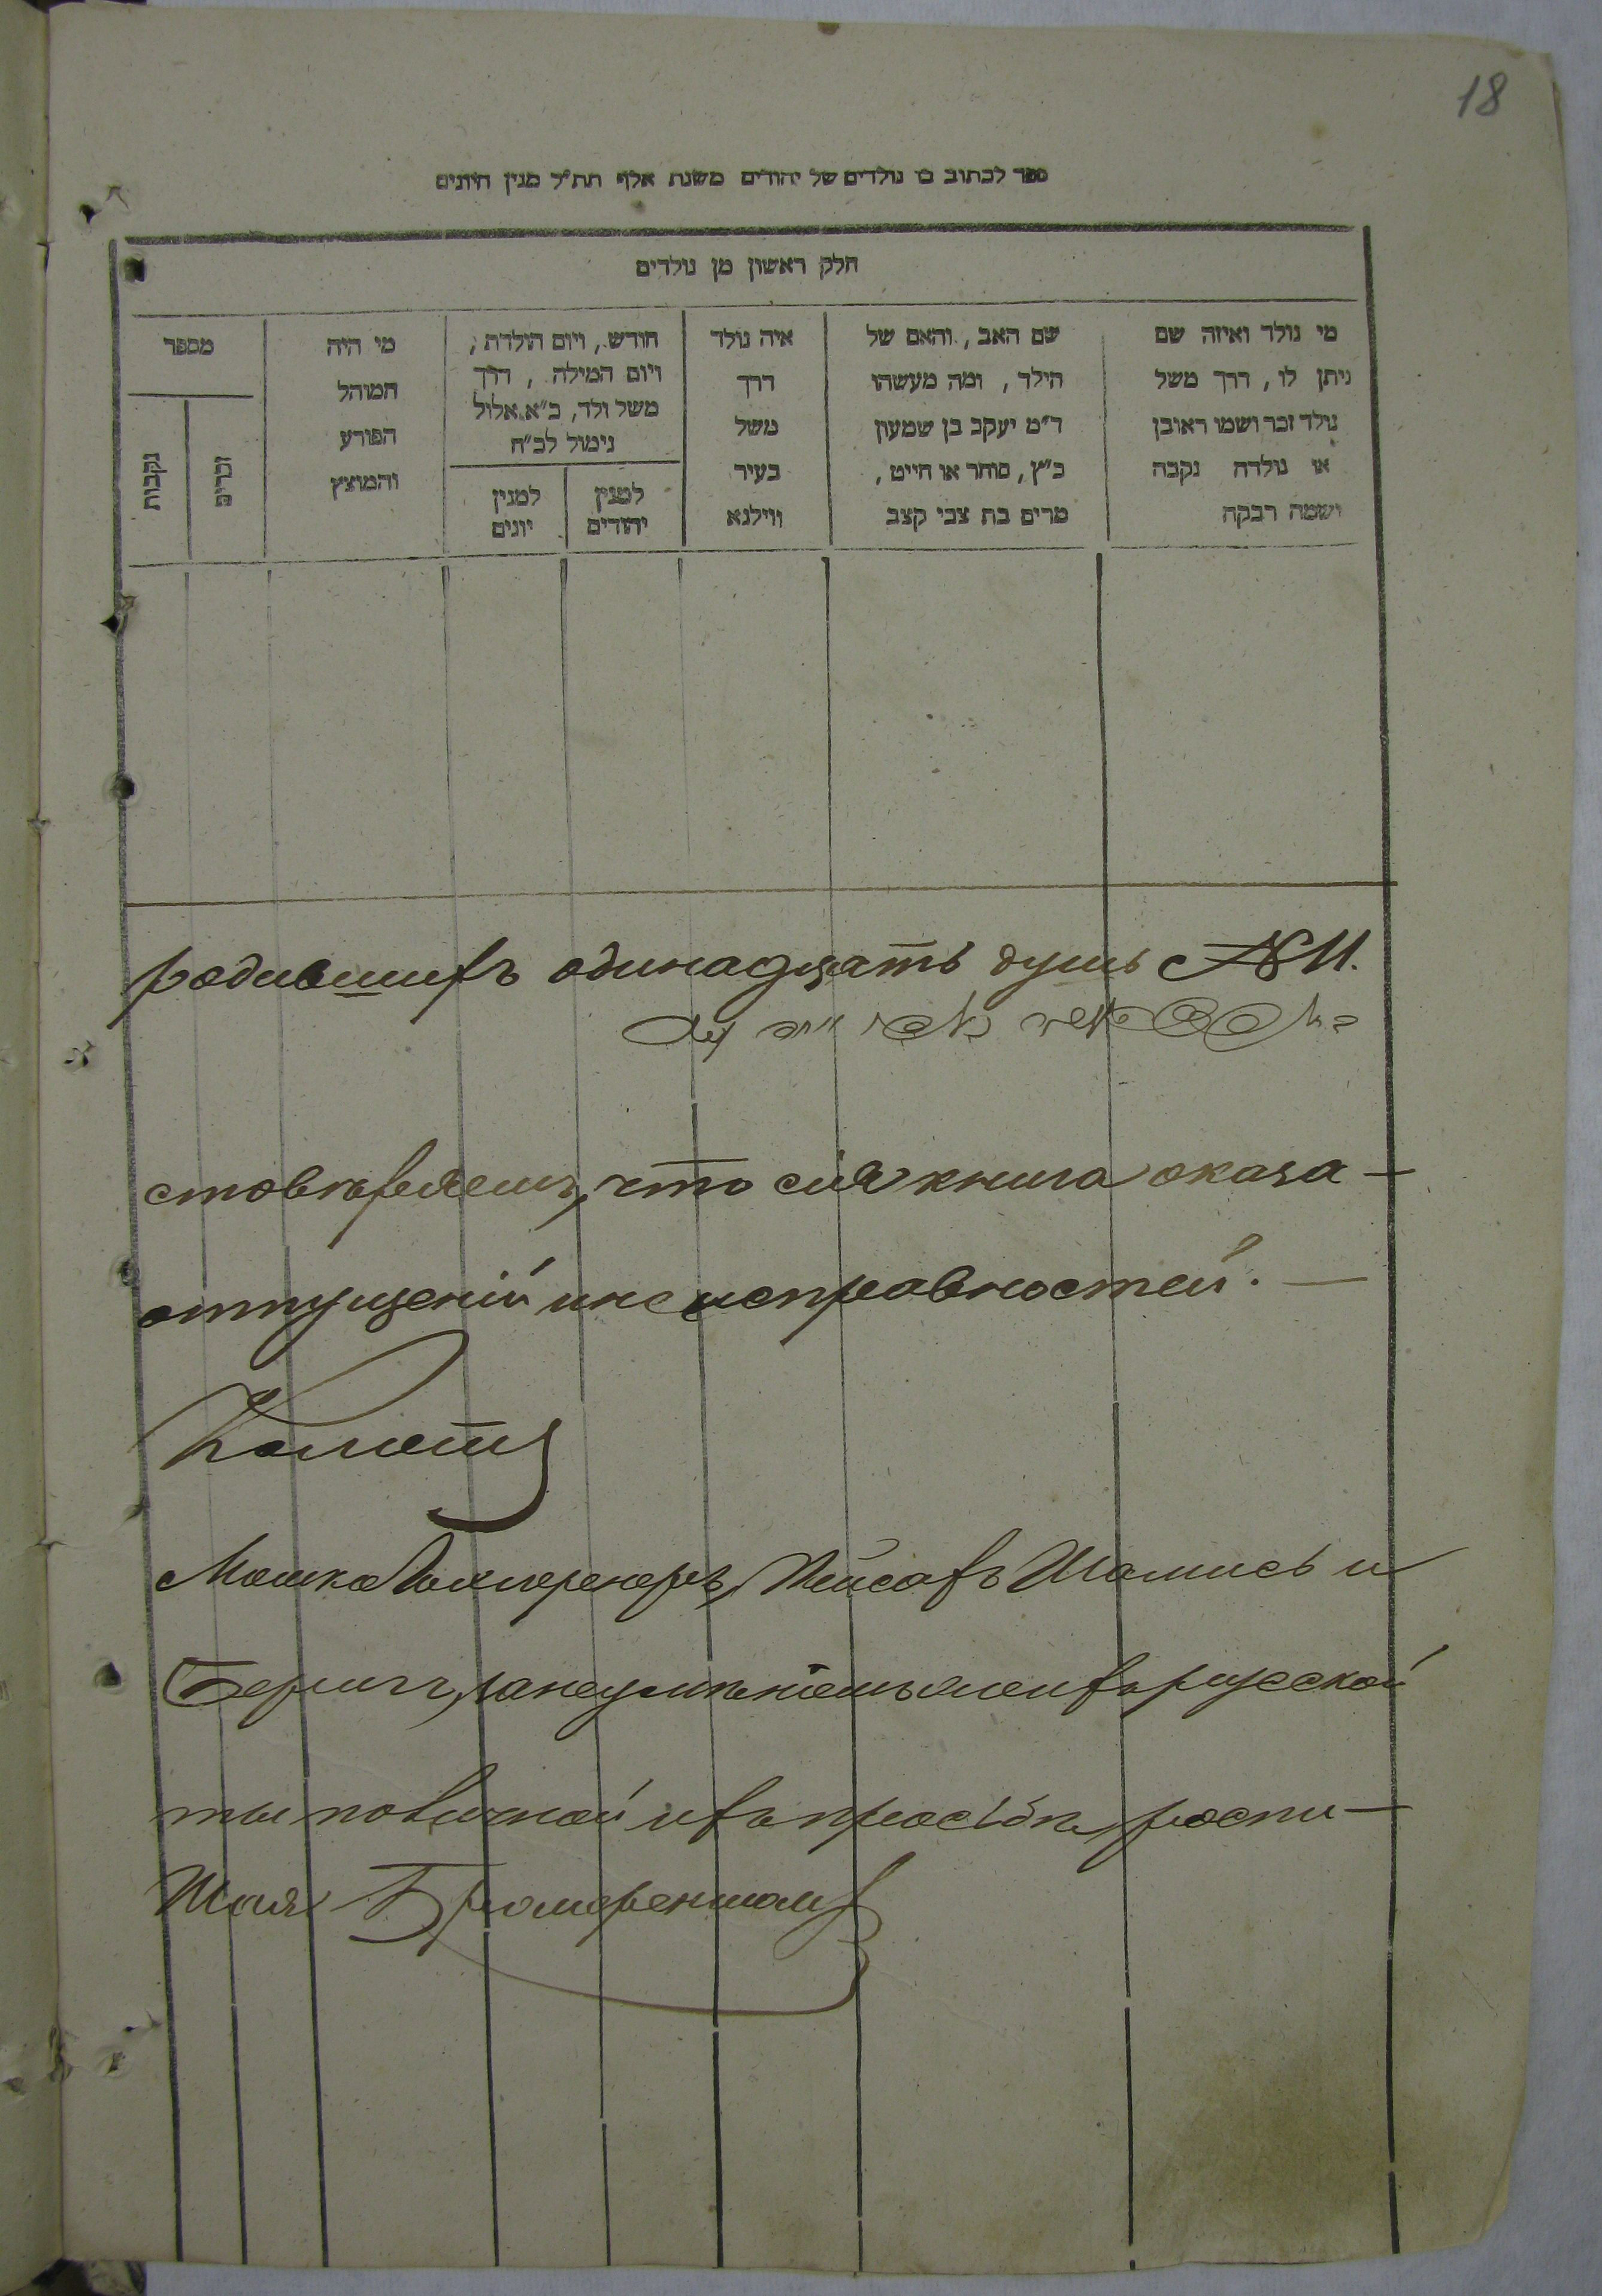 18
ספר לכתוב בו נולדים של יהודים משנת אלף תת״ל מנין היונים
חלק ראשון מן נולדים
מי נולד ואיזה שם
ניתן לו, דרך משל
נולד זכר ושמו ראובן
או נולדה נקבה
ושמה רבקה
שם האב, והאם של
הילד, ומה מעשהו
ד״מ יעקב בן שמעון
כ״ץ, סוחר או חייט,
מרים בת צבי קצב
איה נולד
דרך
משל
בעיר
ווילנא
חודש, ויום הולדת,
ויום המילה, דרך
משל ולד, כ״א אלול
נימול לכ״ח
למנין
יהודים
למנין
יונים
מי היה
המוהל
הפורע
והמוצץ
מספר
זכרים
נקבות
родившихъ одинадцать душъ
стовѣряемъ, что сія книга оказа-
опущеній и неисправностей.
Мошка Пейсахъ Шамисъ и
Берманъ, за неумѣніемъ ихъ русской
ты по личной ихъ просьбѣ, роспи-
Шая